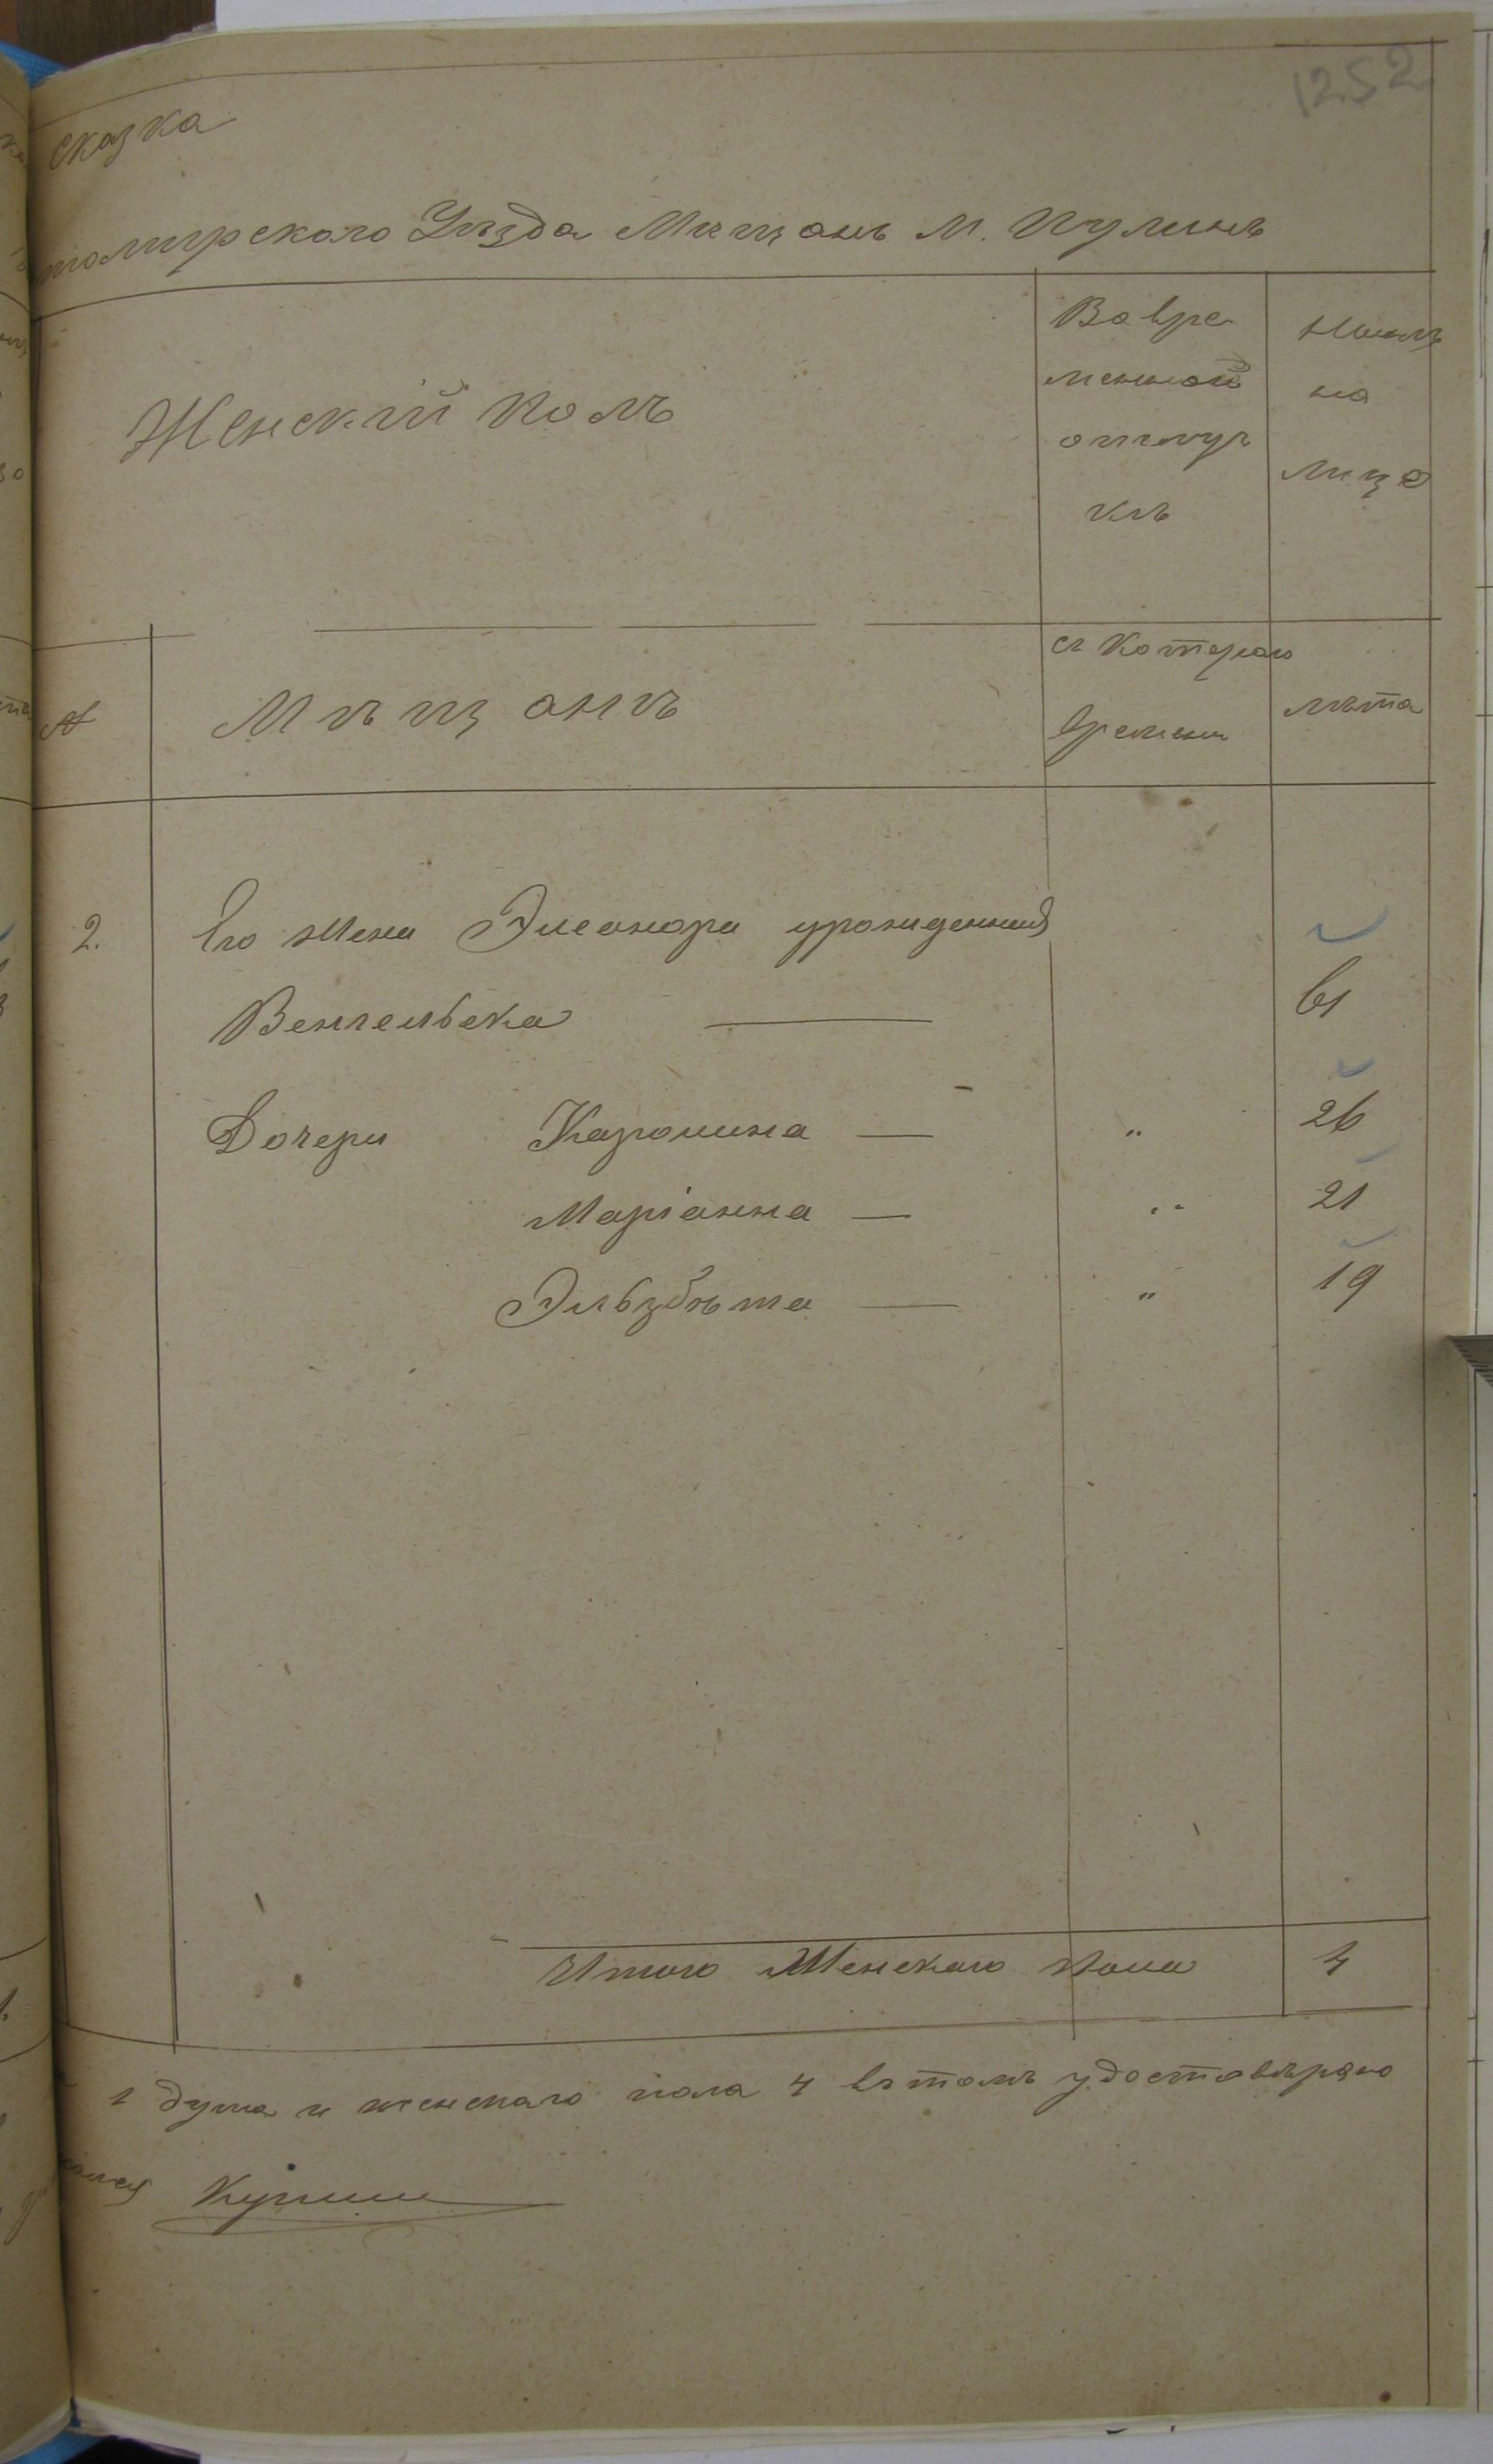 1252
сказка
томирского Уѣзда Мѣщанъ М. Пулинъ
Женскій Полъ
Во вре
менной
отлуч
кѣ
Нынѣ
на
лице
№
Мѣщанъ
съ Котораго
времени
лѣта
2. Его Жена Элеонора урожденная
Венгельска — 61
Дочери Каролина — " 26
Маріанна — " 21
Эльзбѣта — " 19
Итого Женскаго пола 4
1 душа и женскаго пола 4 въ томъ удостовѣряю